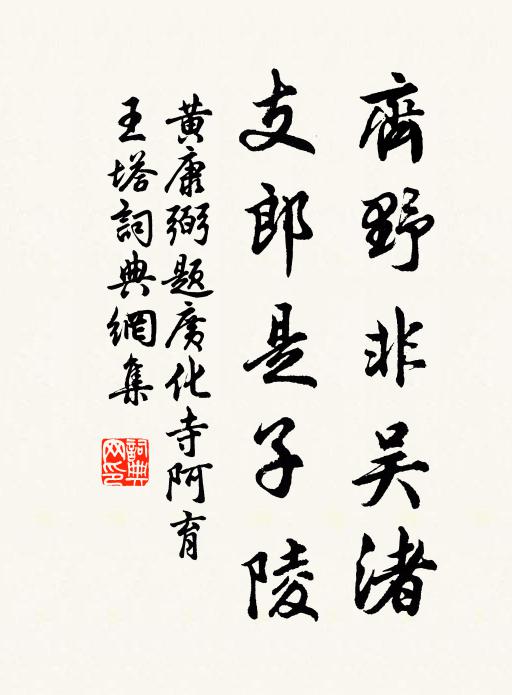 齊野非吴渚
支郎是子陵
黄康弼题廣化寺阿育
王塔詞典網集
詞典网印